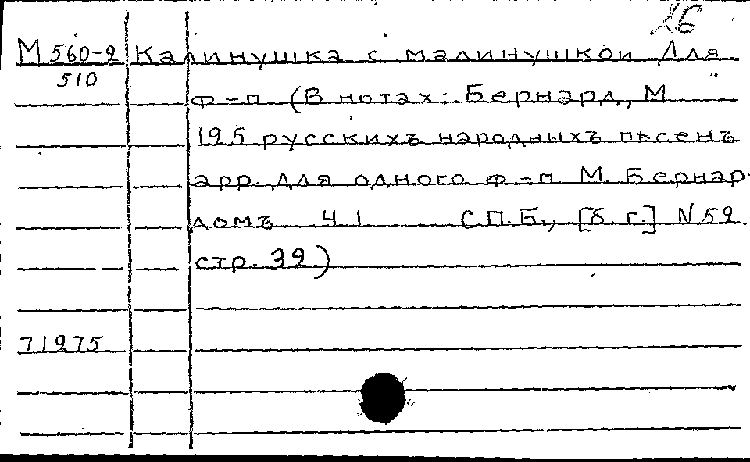 26
М 560-2 Калинушка с малинушкой Для
510
ф-п (В нотах: Бернард, М
125 русскихъ народныхъ пѣсенъ
арр. для одного ф-п М. Бернар-
домъ Ч 1 С.П.Б., [б г.] N 59
стр. 39)
71975